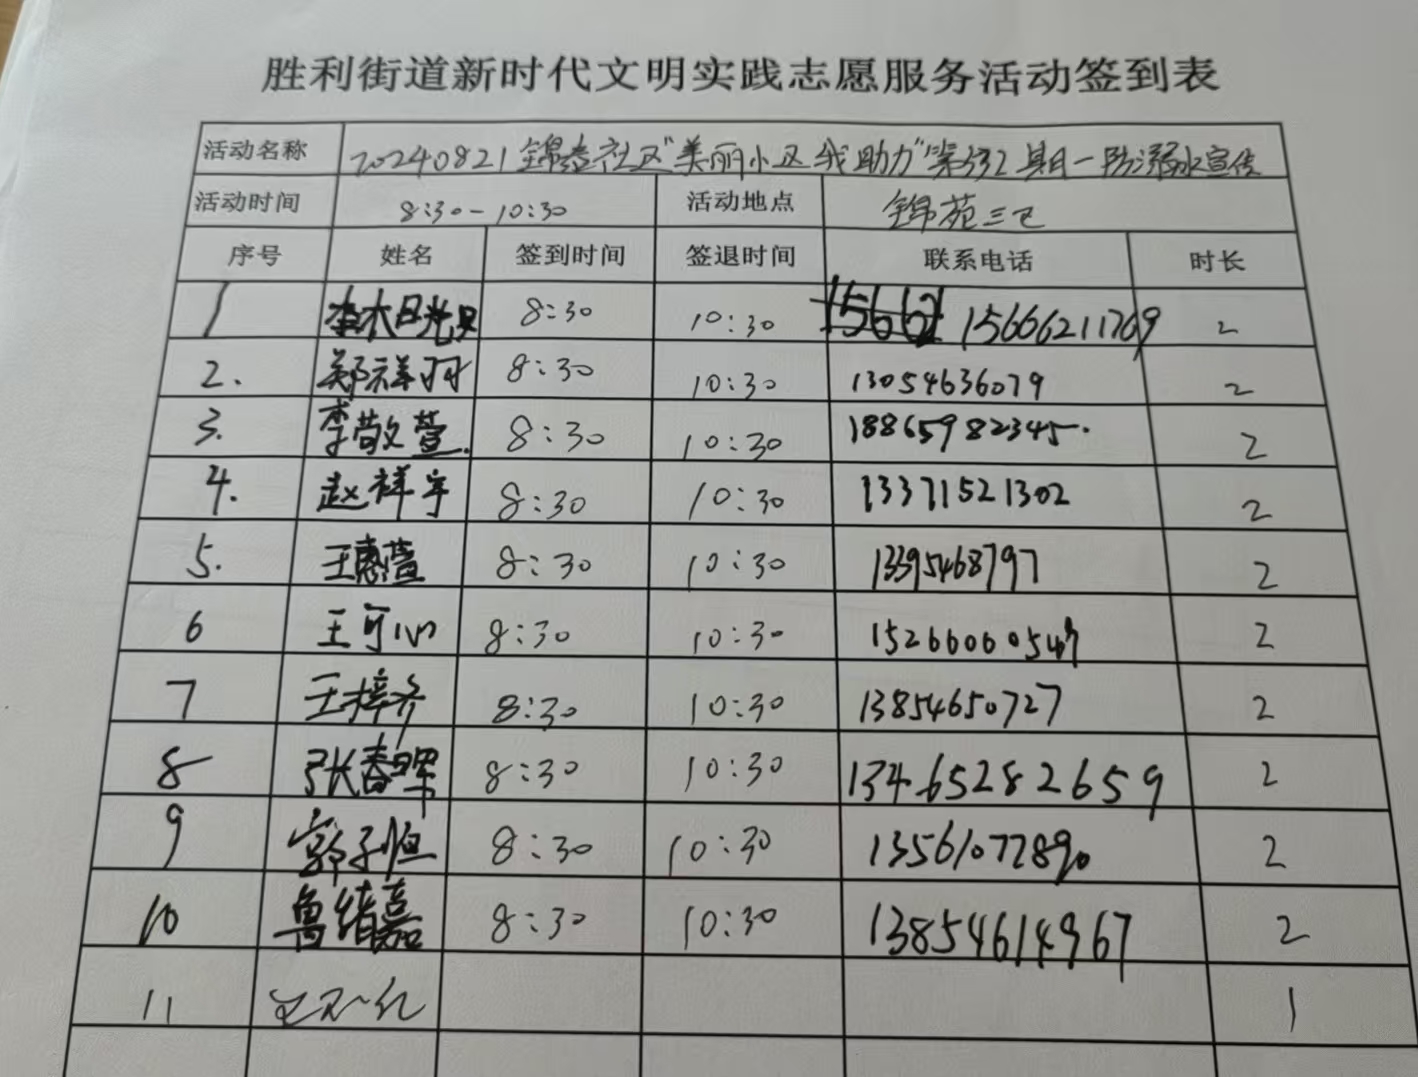 胜利街道新时代文明实践志愿服务活动签到表
活动名称 20240821 锦苑社区"美丽小区我助力"第332期一防溺水宣传
活动时间 8:30-10:30 活动地点 锦苑三区
序号 姓名 签到时间 签退时间 联系电话 时长
1 8:30 10:30 15666211769 2
2. 郑祥羽 8:30 10:30 13054636079 2
3. 李敬萱. 8:30 10:30 18865982345. 2
4. 赵祥宇 8:30 10:30 13371521302 2
5. 王惠萱 8:30 10:30 13395468797 2
6 王可心 8:30 10:30 2
7 王梓齐 8:30 10:30 13854650727 2
8 张春晖 8:30 10:30 13465282659 2
9 郭子恒 8:30 10:30 13561077890 2
10 鲁绪嘉 8:30 10:30 13854614967 2
11 1